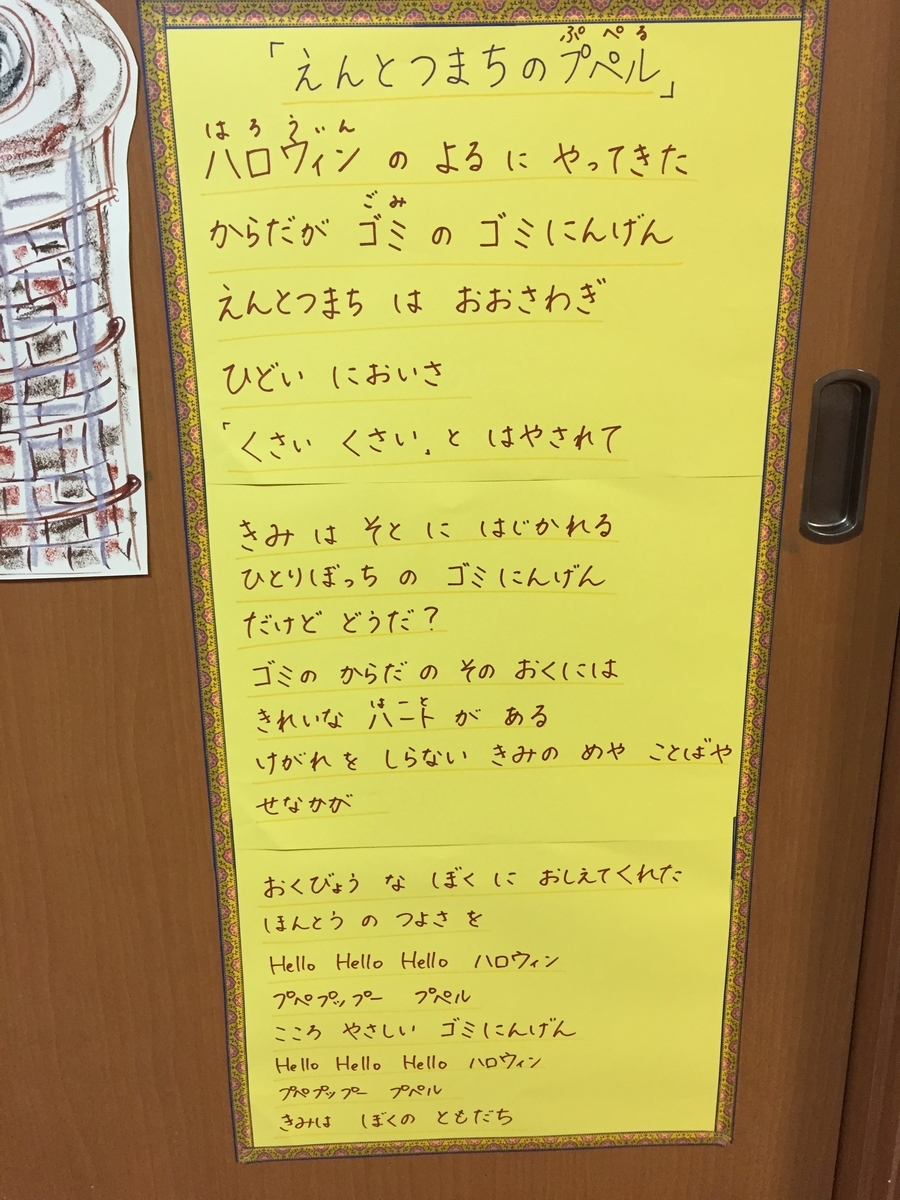 ぷぺる
「えんとつまちのプペル」
はろうぃん
ハロウィン の よる に やってきた
ごみ
からだが ゴミ の ゴミにんげん
えんとつまち は おおさわぎ
ひどい においさ
「くさい くさい」と はやされて
きみ は そと に はじかれる
ひとりぼっち の ゴミにんげん
だけど どうだ?
ゴミの からだ の その おくには
はーと
きれいな ハート が ある
けがれを しらない きみの めや ことばや
せなかが
おくびょう な ぼく に おしえてくれた
ほんとう の つよさ を
Hello Hello Hello ハロウィン
プペプップー プペル
こころ やさしい ゴミにんげん
Hello Hello Hello ハロウィン
プペプップー プペル
きみは ぼくの ともだち